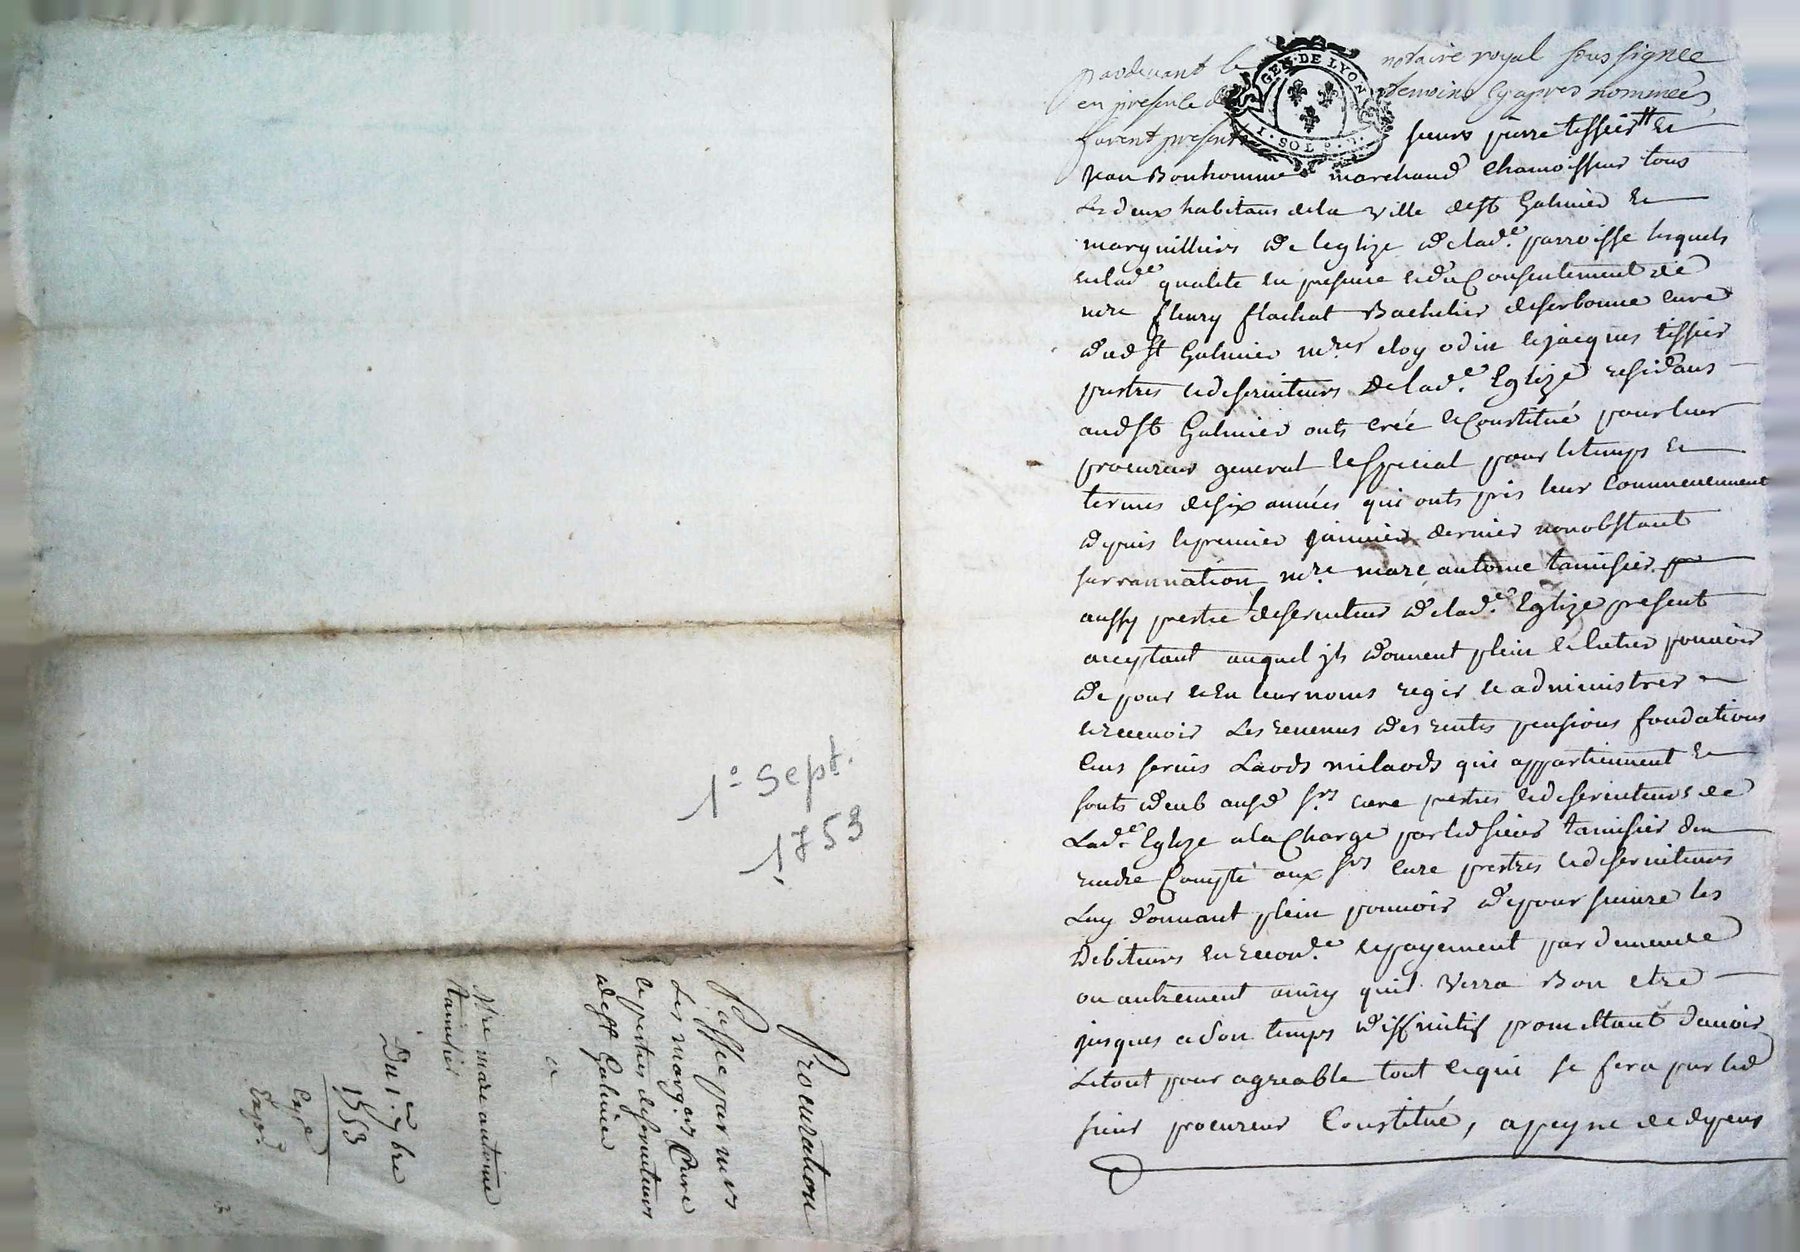 1º Sept.
1753
Procuration
Passé par mrs
Les marg.ers Curé
& prestres deserviteurs
de st Galmier
a
Mre marc antoine
tamisier
Du 1.er 7bre
1753
Exp.é
Pardevant le notaire royal soussignee
en presence des temoins cy apres nommés
furent presents sieurs pierre tissier # &
Jean Bonhomme marchand chamoisseur tous
Les deux habitans de la ville de st Galmier &
marguilliers de leglize de lad.e parroisse lesquels
en lad.e qualité en presence & du Consentement de
mre fleury flachat Bachelier de sorbonne curé
dud st Galmier mres eloy odin & jacques tissier
prestres & deserviteurs de lad.e Eglize residans
aud st Galmier onts créé & Constitué pour leur
procureur general & special pour le temps &
termes de six années qui onts pris leur commencement
depuis le premier janvier dernier nonobstant
surrannation mre marc antoine tamisier
aussy prestre deserviteur de lad.e Eglize present
acceptant auquel jls donnent plein & entier pouvoir
de pour & en leur noms regir & administrer
& recevoir Les revenus des rentes pensions fondations
cens servis Laods milaods qui appartiennent &
sonts deub ausd srs curé prestres & deserviteurs de
Lad.e Eglize a la Charge par led sieur tamisier den
rendre Compte aux srs curé prestres & deserviteurs
Luy donnant plein pouvoir de poursuivre les
Debiteurs en recou.e & payement par
ou autrement ainsy quil Verra Bon etre
jusques a Son temps diffinitif promettant davoir
Le tout pour agreable tout ce qui se fera par led
sieur procureur Constitué, a peyne de depens